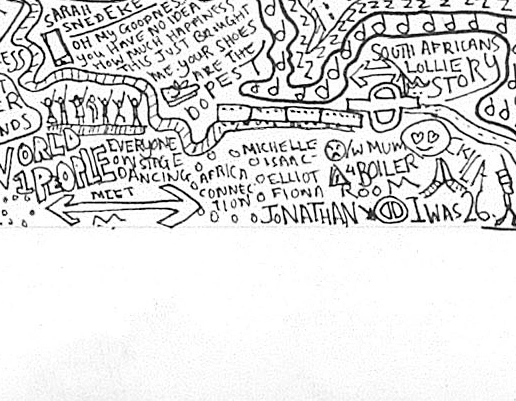 SARAH
SNEDEKE
OH MY GOODNESS
YOU HAVE NO IDEA
HOW MUCH HAPPINESS
THIS JUST BROUGHT
ME YOUR SHOES
ARE THE
DOPEST
ESS
ER
NDS
SOUTH AFRICANS
LOLLIE
STORY
WORLD
1 PEOPLE
EVERYONE
ON STAGE
DANCING
MEET
AFRICA
CONNEC-
TION
MICHELLE
ISAAC
ELLIOT
FIONA
JONATHAN
W MUM
4 BOILER
ROOM
I WAS 26